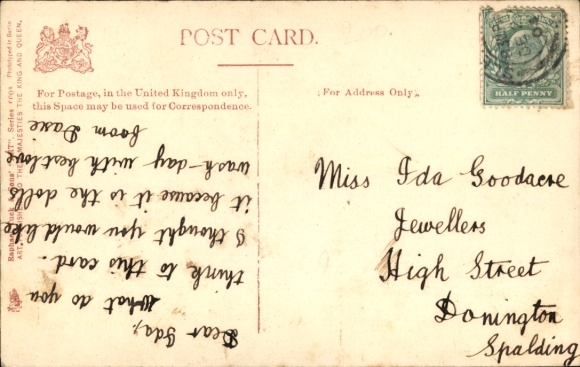 POST CARD.
For Postage, in the United Kingdom only,
this Space may be used for Correspondence.
(For Address Only.)
HALF PENNY
Dear Ida,
What do you
think to this card.
I thought you would like
it because it is the dolls
wash-day with best love
from
Miss Ida Goodacre
Jewellers
High Street
Donington
Spalding
Photographed in Berlin
TO THEIR MAJESTIES THE KING AND QUEEN.